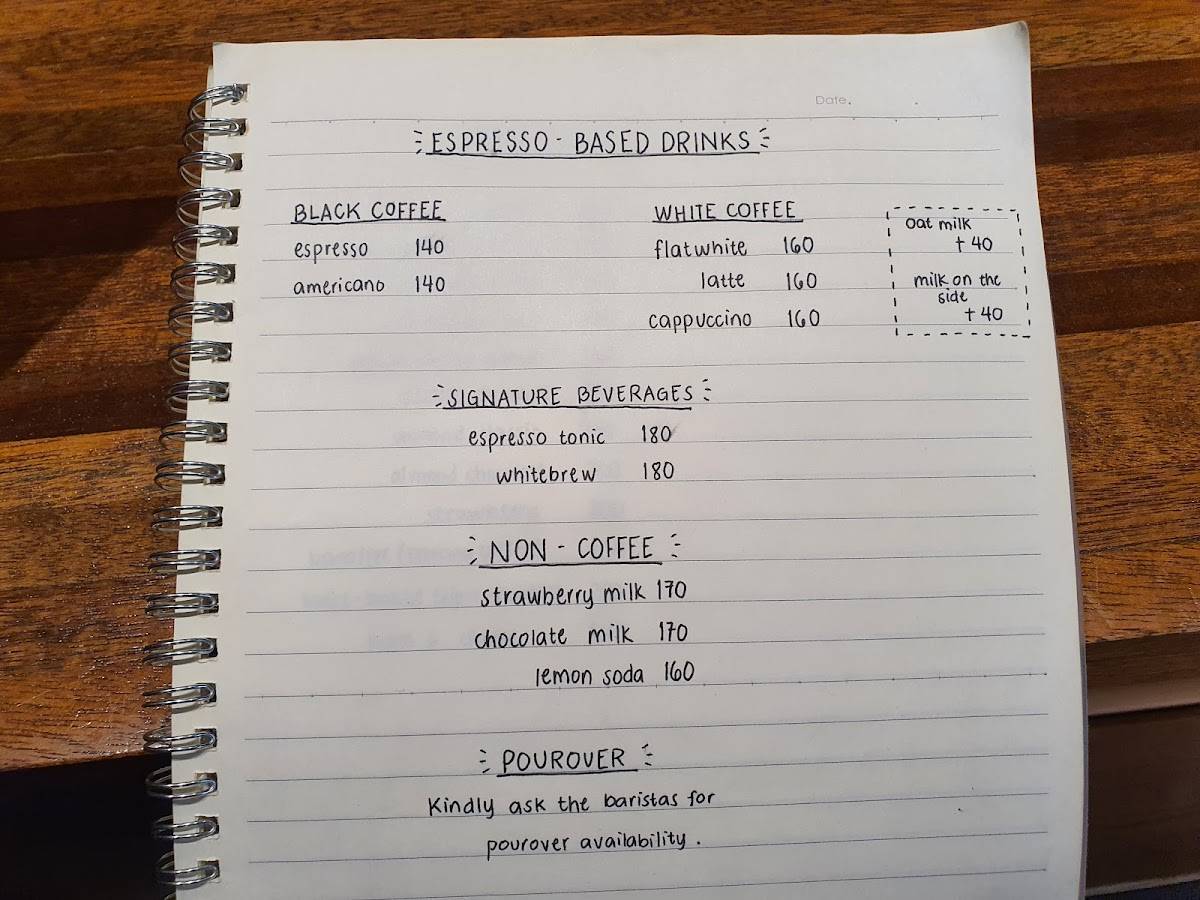 Date.
ESPRESSO - BASED DRINKS
BLACK COFFEE
espresso 140
americano 140
WHITE COFFEE
flatwhite 160
latte 160
cappuccino 160
oat milk
+ 40
milk on the
side
+ 40
SIGNATURE BEVERAGES
espresso tonic 180
whitebrew 180
NON - COFFEE
strawberry milk 170
chocolate milk 170
lemon soda 160
POUROVER
Kindly ask the baristas for
pourover availability.